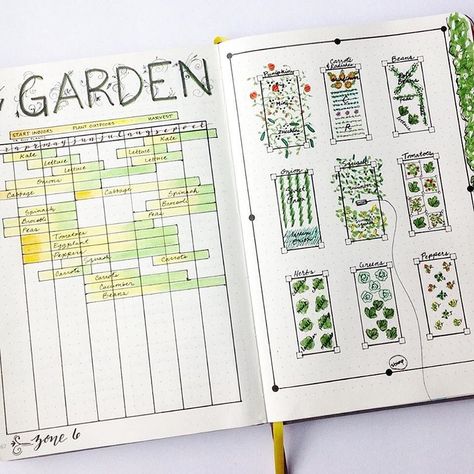 GARDEN
START INDOORS PLANT OUTDOORS HARVEST
Kale Kale
Lettuce Lettuce
Lettuce Lettuce
Onions
Cabbage Cabbage Spinach
Spinach Brocoli
Brocoli Peas
Peas
Tomatoes
Eggplant
Peppers Squash
Carrots Carrots
Carrots
Cucumber
Beans
zone 6
Pumpkins
Carrots
& Radishes
Beans
Onion
Squash
Tomatoes
Herbs
Greens
Peppers